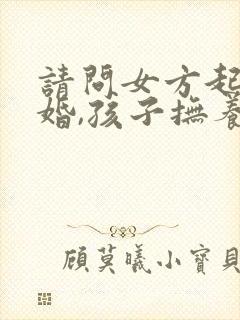 請問女方起
婚,孩子撫養
顧莫曦小寶貝